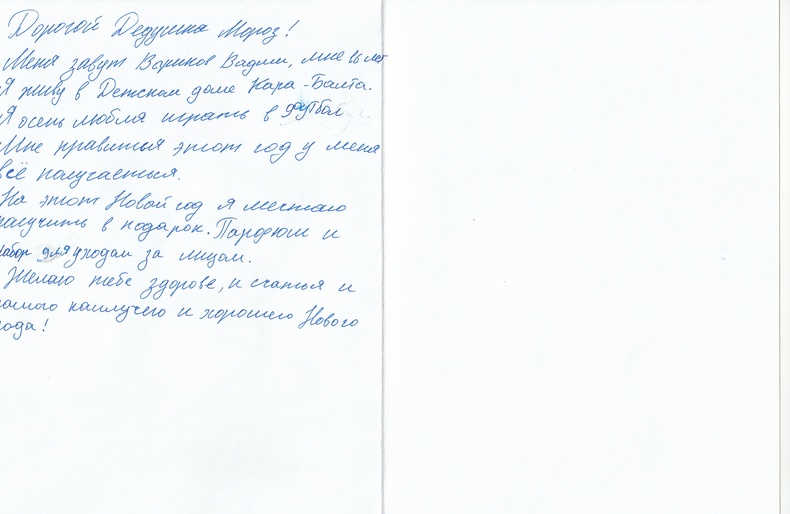 Дорогой Дедушка Мороз!
Меня завут Вориков Вадим, мне лет
Я живу в Детском доме Кара-Балта.
Я осень люблю играть в футбол
Мне нравиться этот год у меня
всё палучаеться.
На этот Новой год я местаю
палучить в подарок. Парфюм и
набор для уходам за лицом.
Желаю тебе здорове, и счатья и
самого наилучего и хорошего Нового
года!